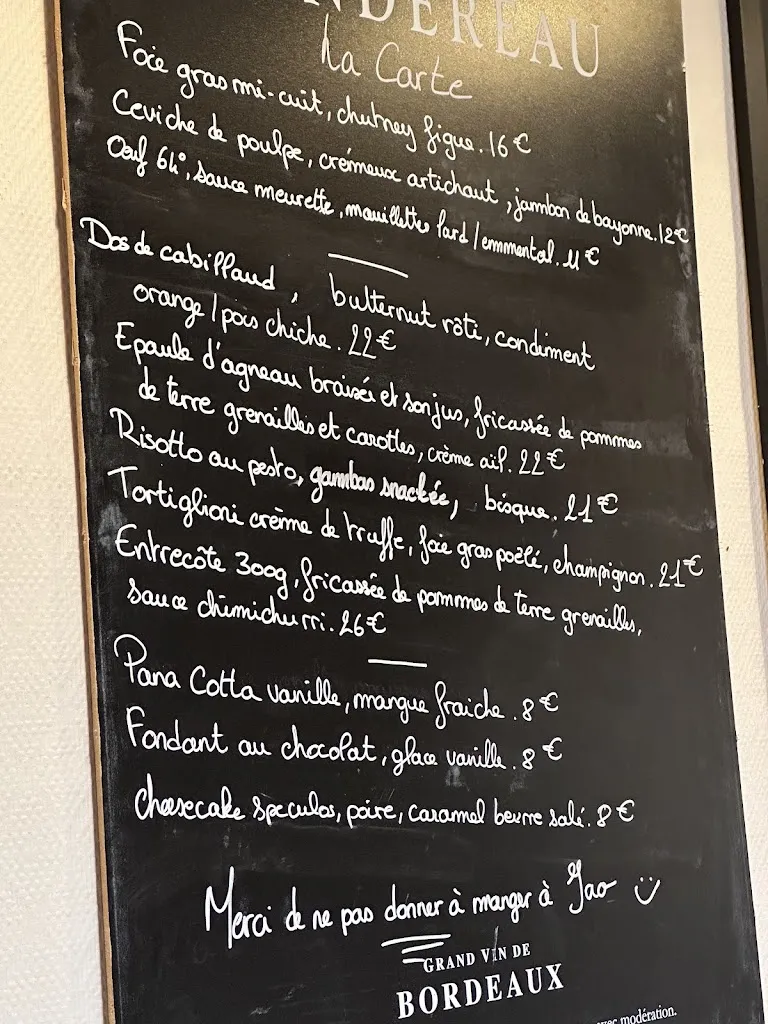 NDEREAU
La Carte
Foie gras mi-cuit, chutney figue. 16€
Ceviche de poulpe, crémeux artichaut, jambon de bayonne. 12€
Oeuf 64°, sauce meurette, mouillettes lard / emmental. 11€
Dos de cabillaud, butternut rôti, condiment
orange / pois chiche. 22€
Epaule d'agneau braisée et son jus, fricassée de pommes
de terre grenailles et carottes, crème ail. 22€
Risotto au pesto, gambas snackée, bisque. 21€
Tortiglioni crème de truffe, foie gras poêlé, champignon. 21€
Entrecôte 300g, fricassée de pommes de terre grenailles,
sauce chimichurri. 26€
Pana Cotta vanille, mangue fraiche. 8€
Fondant au chocolat, glace vanille. 8€
Cheesecake speculos, poire, caramel beurre salé. 8€
Merci de ne pas donner à manger à Jao
GRAND VIN DE
BORDEAUX
avec modération.